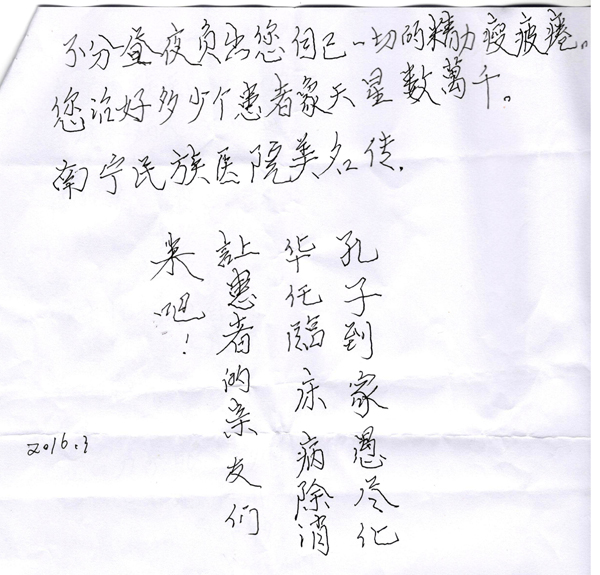 不分昼夜负出您自己一切的精力疫疲惫。
您治好多少个患者象天星数萬千。
南宁民族医院美名传.
孔子到家愚尽化
华佗臨床病除消
訟患者的亲友们
来吧！
2016.3